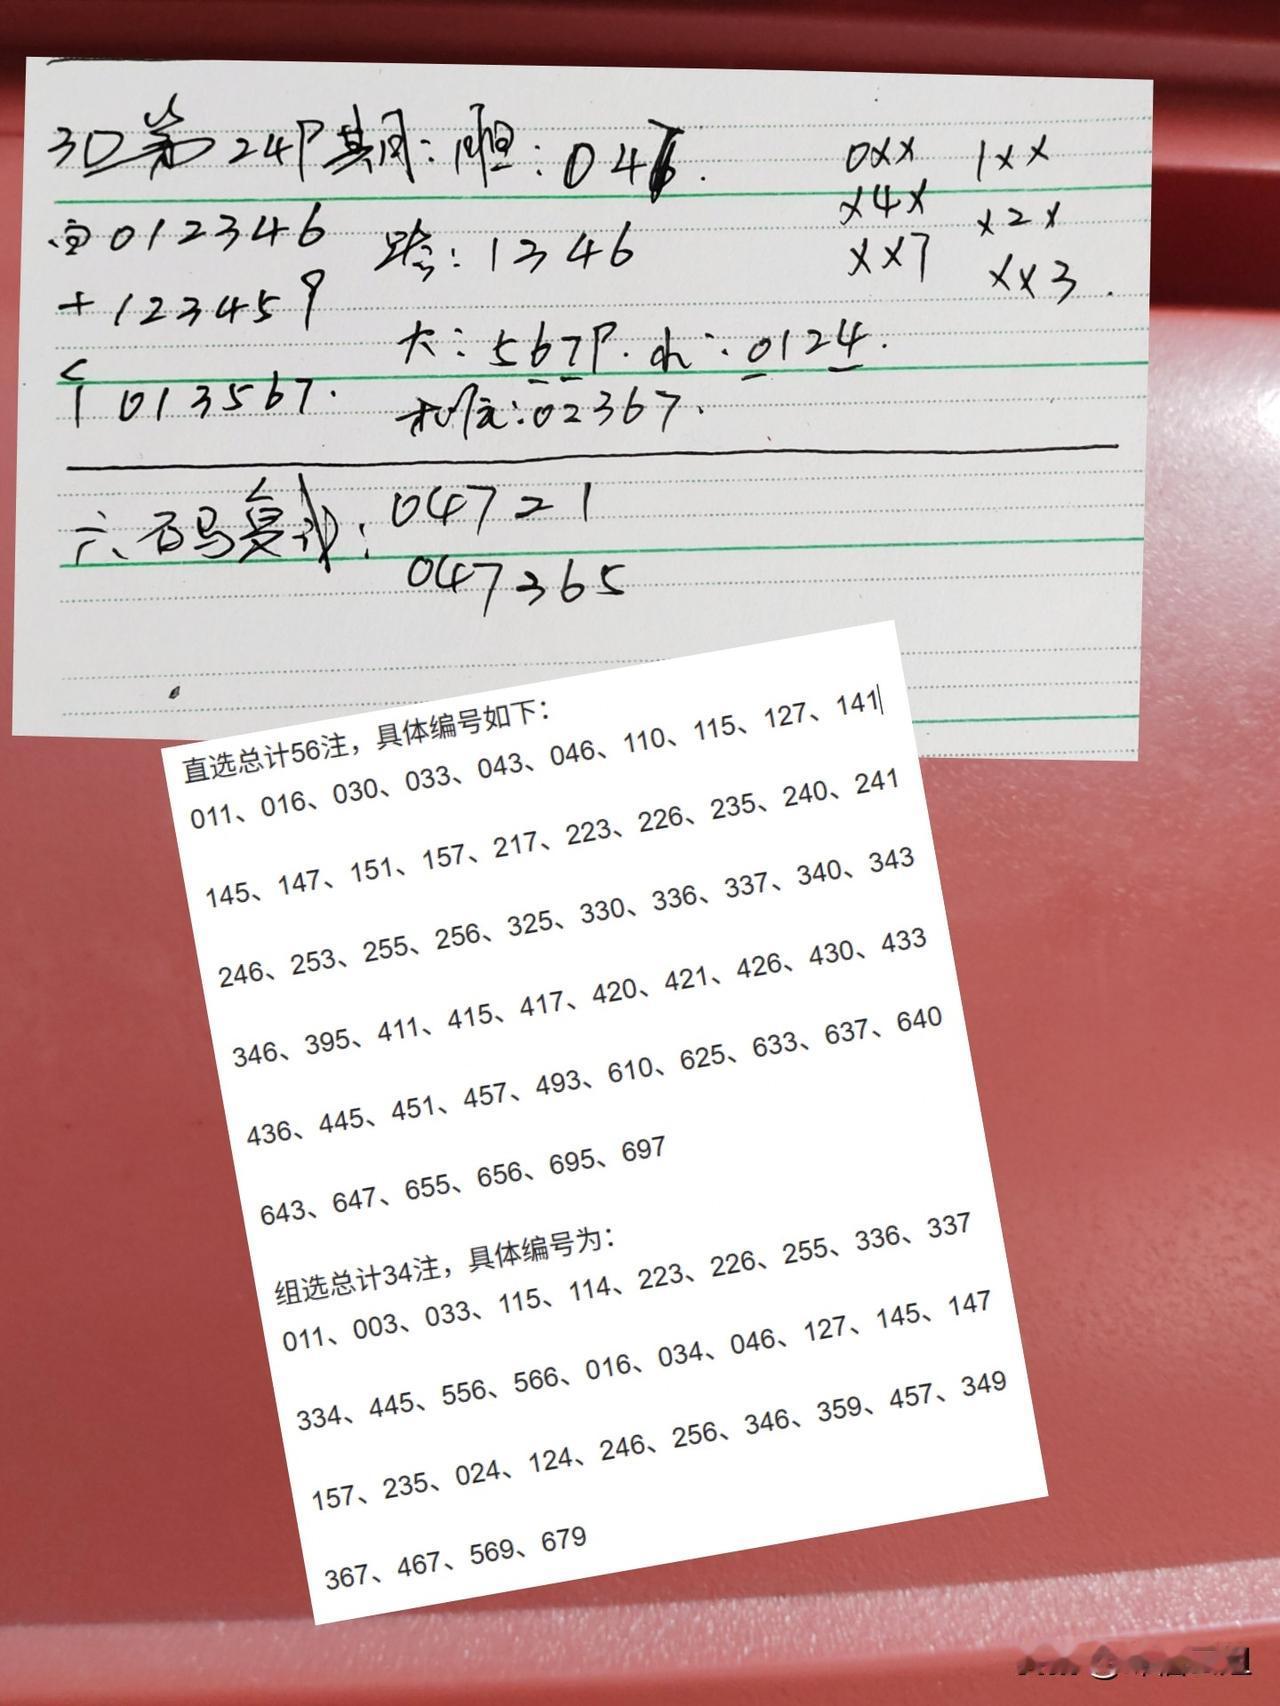 3D第249期:胆:047.
百012346
+123459
个013567.
跨:12346
大:5679.小:0124.
和值:02367.
0xx 1xx
x4x x2x
xx7 xx3.
六码复试:04721
047365
直选总计56注，具体编号如下：
011、016、030、033、043、046、110、115、127、141
145、147、151、157、217、223、226、235、240、241
246、253、255、256、325、330、336、337、340、343
346、395、411、415、417、420、421、426、430、433
436、445、451、457、493、610、625、633、637、640
643、647、655、656、695、697
组选总计34注，具体编号为：
011、003、033、115、114、223、226、255、336、337
334、445、556、566、016、034、046、127、145、147
157、235、024、124、246、256、346、359、457、349
367、467、569、679